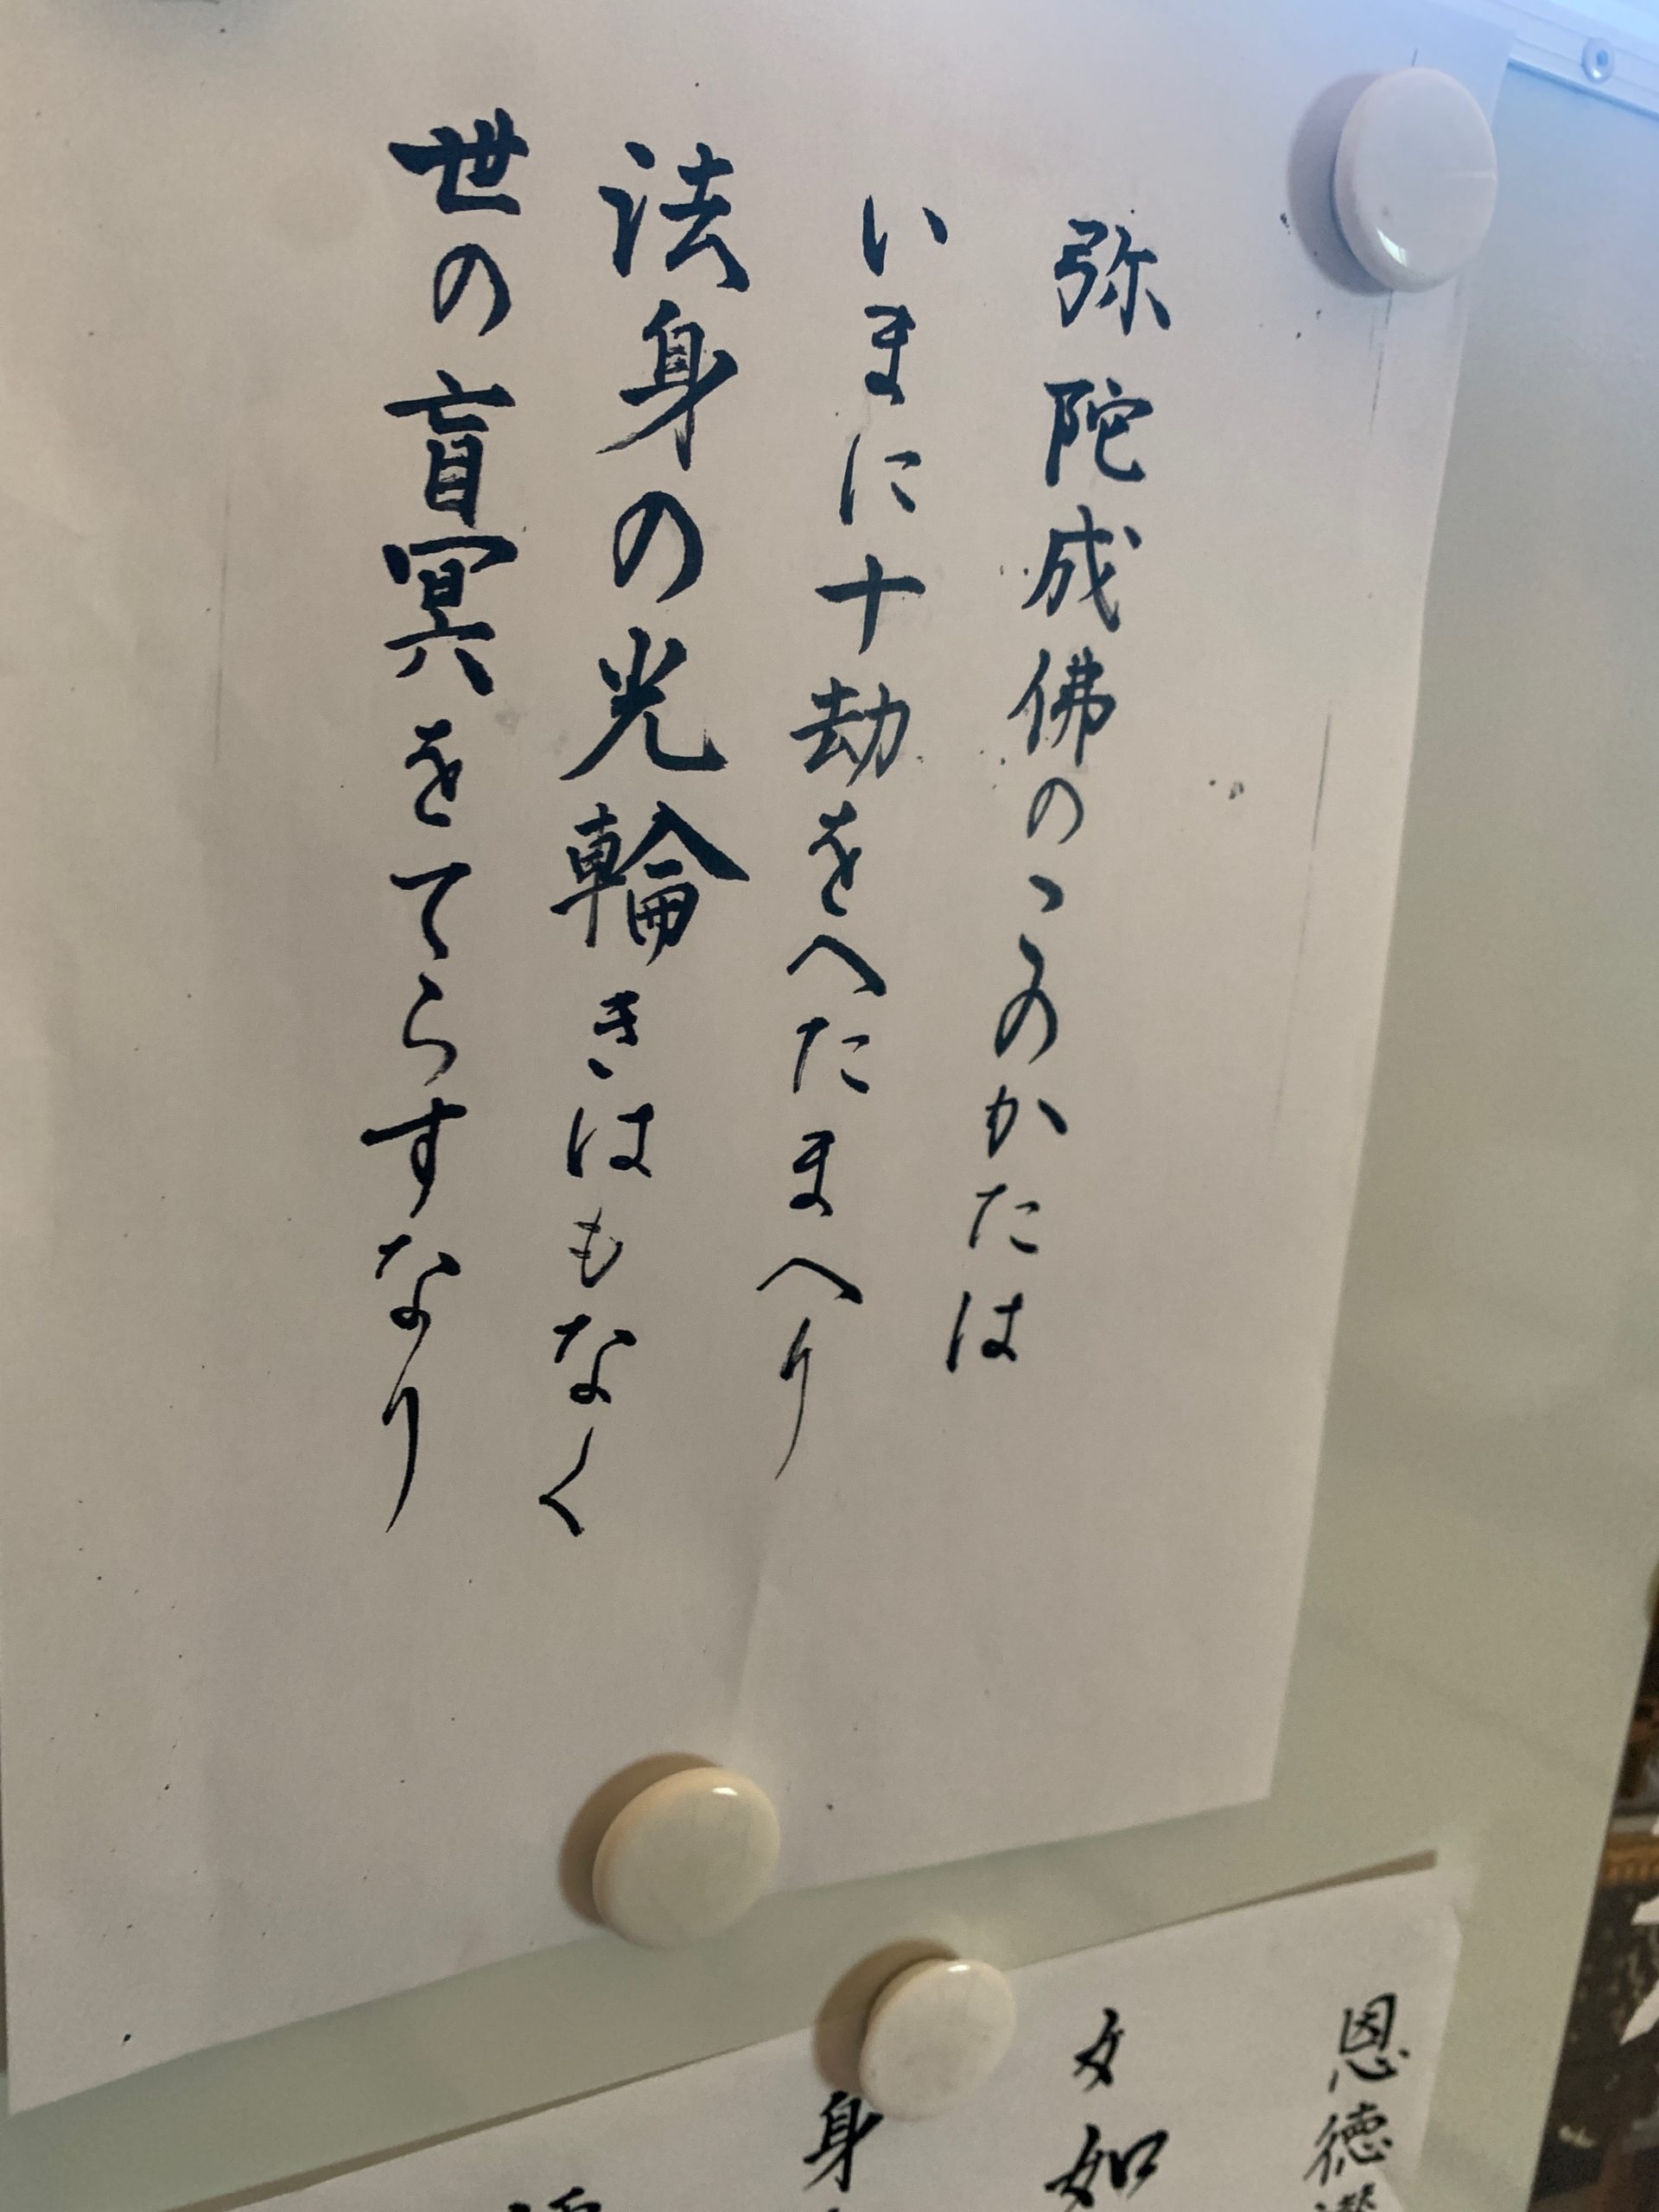 弥陀成佛のこのかたは
いまに十劫をへたまへり
法身の光輪きはもなく
世の盲冥をてらすなり
恩徳
如
身